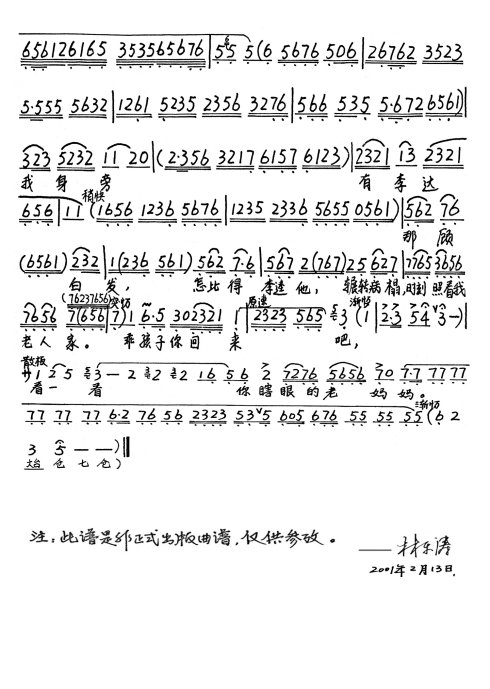 656126165 353565676 | 55 5(6 5676 506 | 26762 3523
5·555 5632 | 1261 5235 2356 3276 | 566 535 5·672 6561)
323 5232 11 20 | (2·356 3217 6157 6123) | 2321 13 2321
我 身 旁 有 李 达
稍快
656 | 11 (1656 1236 5676 | 1235 2336 5655 0561) | 562 76
那 顾
(6561) 232 | 1(236 561) 562 7·6 | 567 2(767) 25 627 | 7765 3656
白 发， 怎比得 李逵他， 辗转病榻，时刻照看我
(76237656) 突切 原速 渐切
7656 7(656 | 7) 1 6·5 302321 | 2323 565 3 (1 | 2·3 54 3 —)
老人家。 乖孩子你回来 吧，
散板
サ1 2 5 3 — 2 2 2 16 56 2 7276 5656 70 77 7777
看一看 你瞎眼的老 妈妈。
渐切
77 77 77 6·2 76 56 2323 53 5 605 676 55 55 55 (6 2
3 5 — —)
仓 七 仓)
注：此谱是非正式出版曲谱，仅供参改。
——林东涛
2001年2月13日.